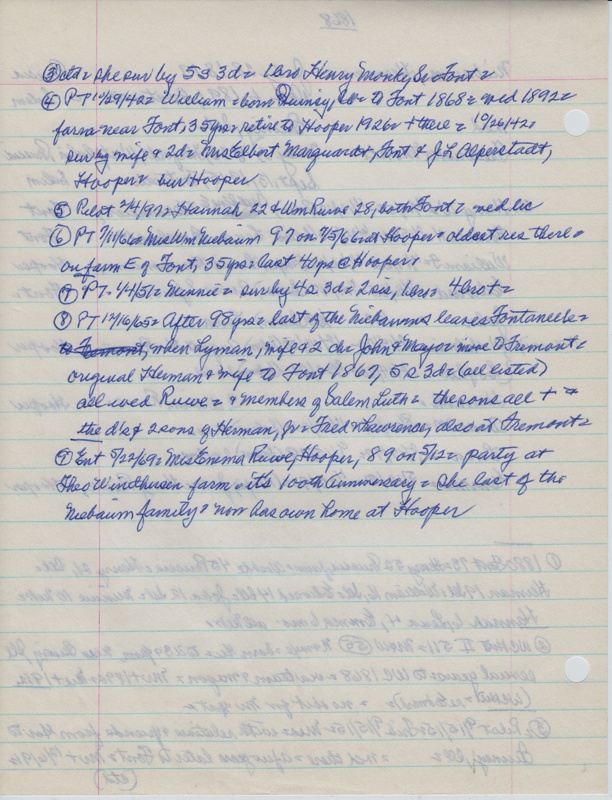 1868
③ ctd = she sur by 5s 3d = 1 bro Henry Monke, Sr = Font =
④ PT 10/29/42 = William = born Quincy, Ill = to Font 1868 = wed 1892 =
farm near Font, 35 yrs = retire to Hooper 1926 = + there = 10/26/42 =
sur by wife & 2d = Mrs Elbert Marquardt, Font & J L Alperstadt,
Hooper = bur Hooper
⑤ Pilot 2/4/97 = Hannah 22 & Wm Ruwe 28, both Font = wed lic
⑥ PT 7/11/61 = Mrs Wm Niebaum 97 on 7/5/61 at Hooper = oldest res there =
on farm E of Font, 35 yrs = last 40 yrs @ Hooper =
⑦ PT 4/4/51 = Minnie = sur by 4s 3d = 2 sis, = 4 brot =
⑧ PT 12/16/65 = After 98 yrs = last of the Niebaums leaves Fontanelle =
to Fremont, when Lyman, wife & 2 ch = John & Mayo = move to Fremont =
original Herman & wife to Font 1867, 5s 3d = (all listed)
all wed Ruwe = & members of Salem Luth = the sons all +
the d's & 2 sons of Herman, Jr = Fred & Lawrence, also at Fremont =
⑨ Ent 5/22/69 = Mrs Emma Ruwe, Hooper, 89 on 5/12 = party at
Theo Windhusen farm = its 100th anniversary = she last of the
Niebaum family = now has own home at Hooper